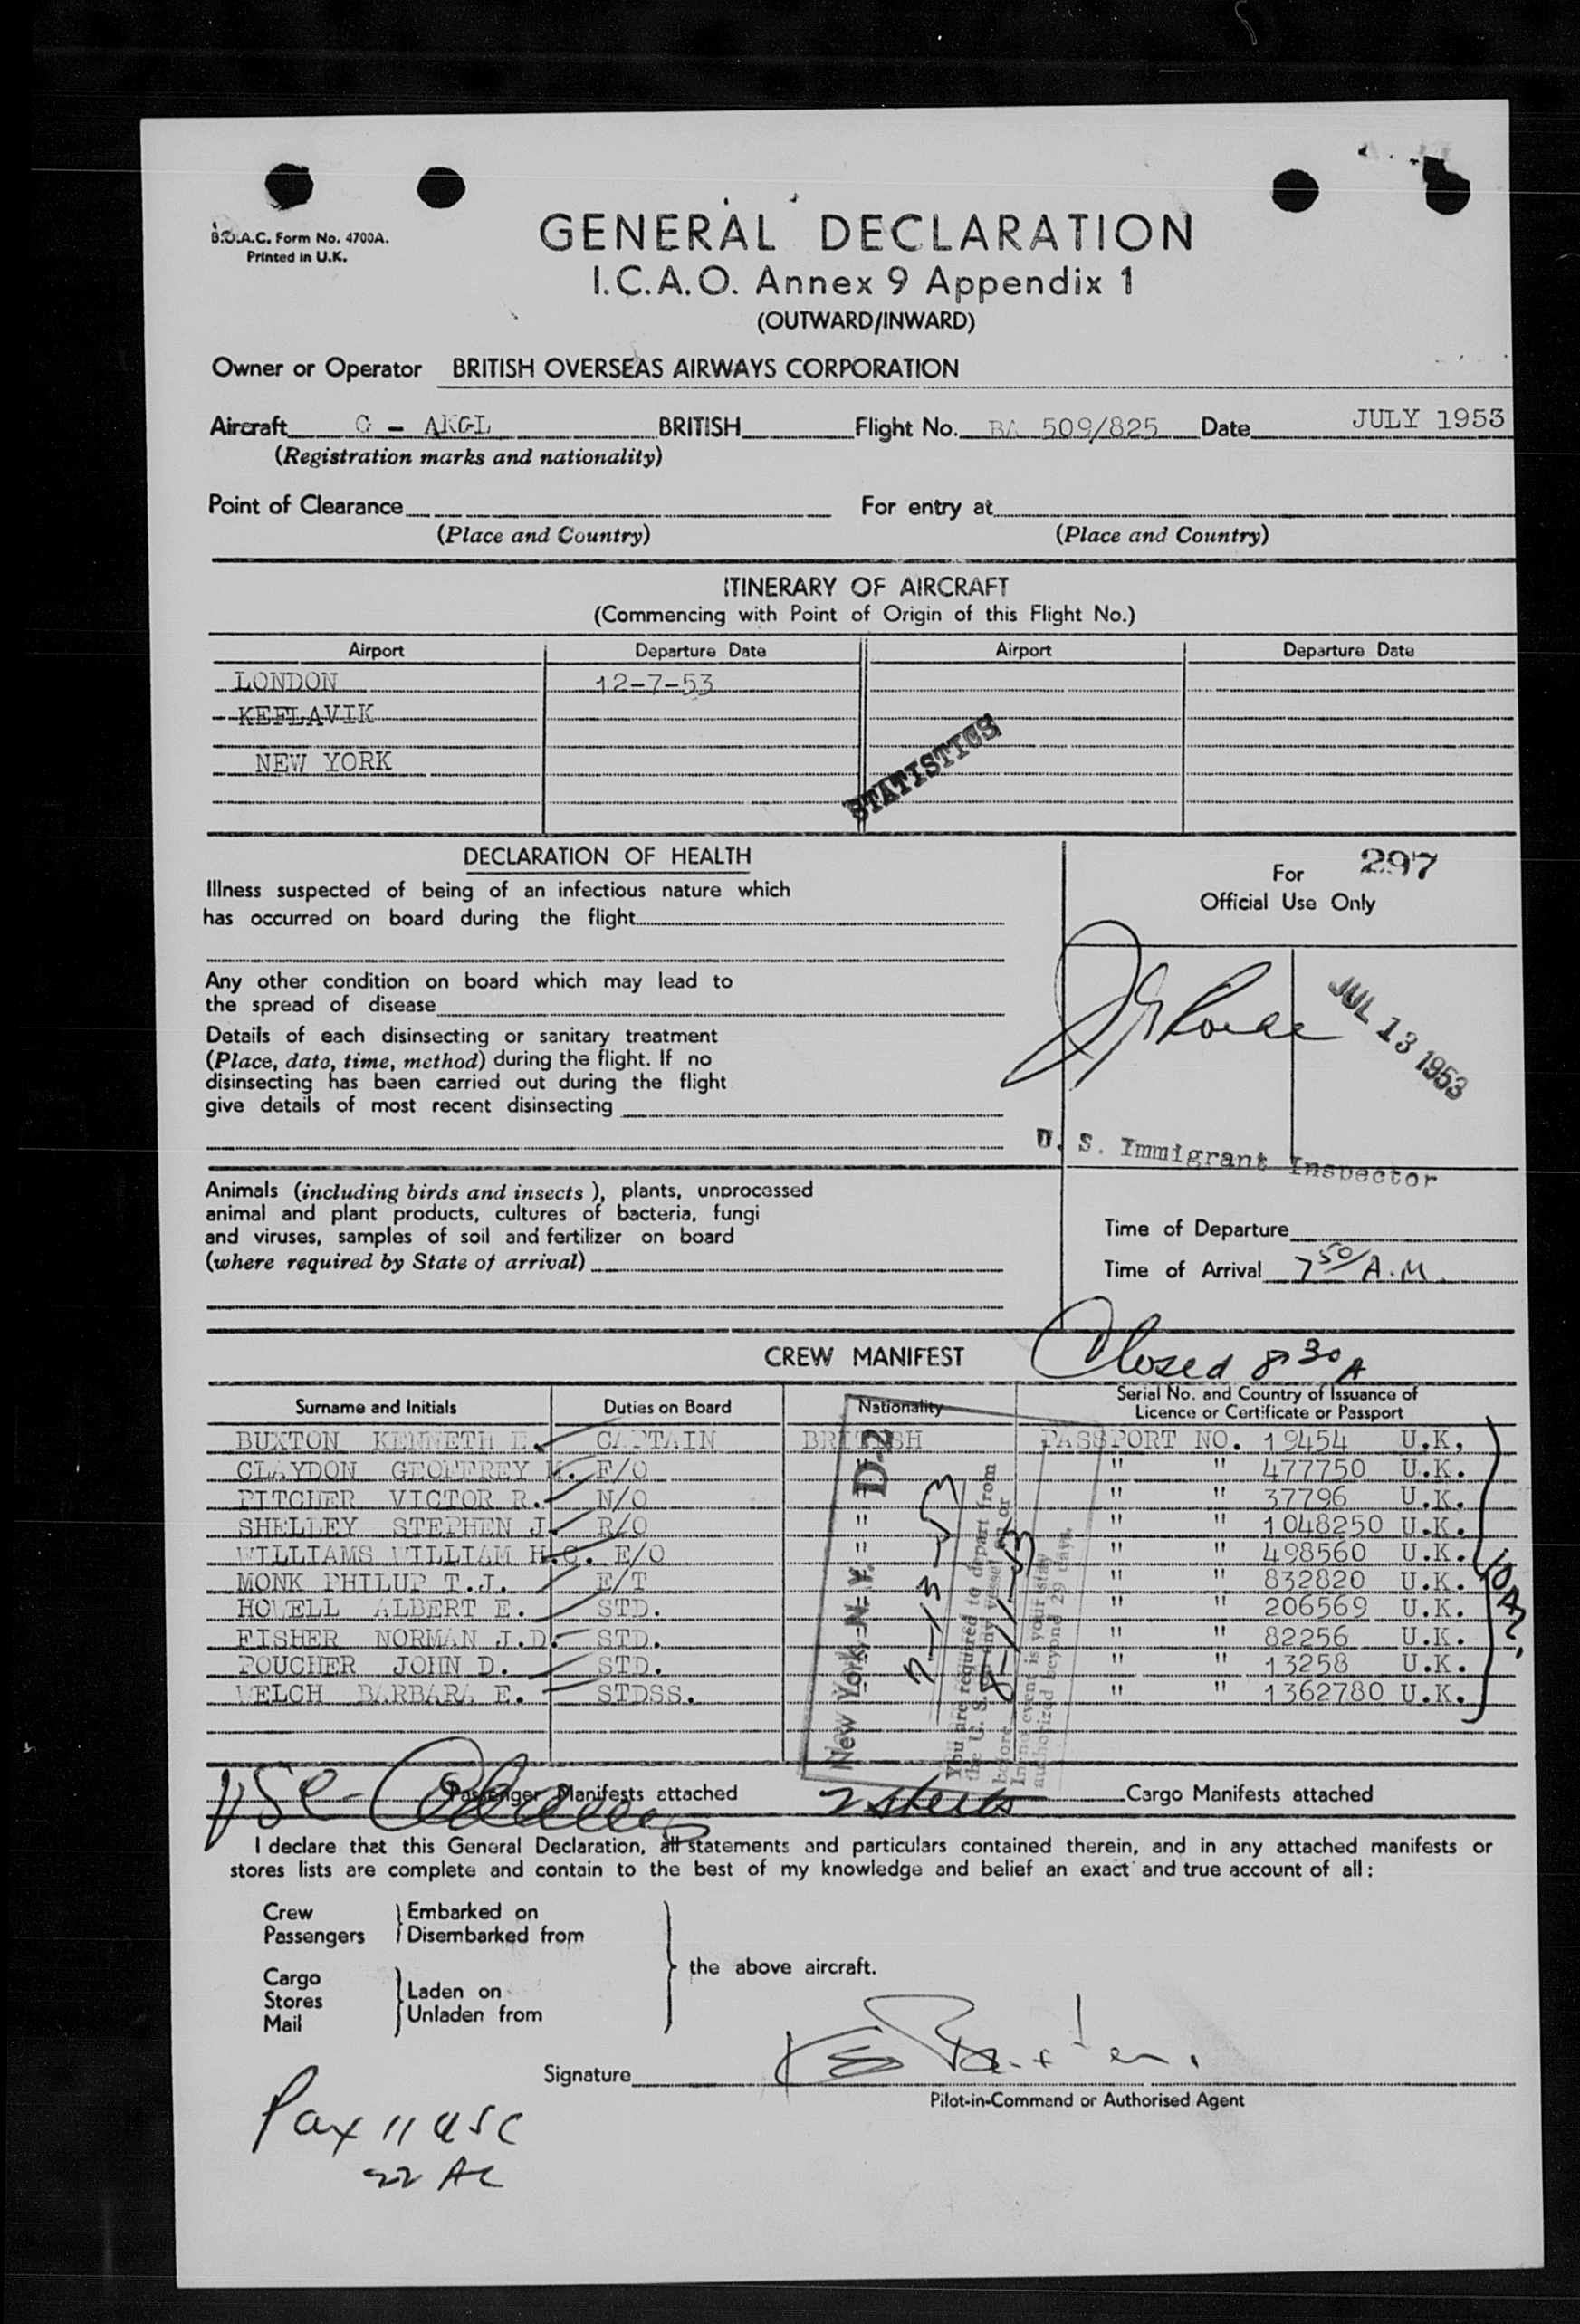 B.O.A.C. Form No. 4700A.
Printed in U.K.
GENERAL DECLARATION
I.C.A.O. Annex 9 Appendix 1
(OUTWARD/INWARD)
Owner or Operator BRITISH OVERSEAS AIRWAYS CORPORATION
Aircraft G - AKGL BRITISH Flight No. BA 509/825 Date JULY 1953
(Registration marks and nationality)
Point of Clearance For entry at
(Place and Country) (Place and Country)
ITINERARY OF AIRCRAFT
(Commencing with Point of Origin of this Flight No.)
Airport Departure Date Airport Departure Date
LONDON 12-7-53
KEFLAVIK
NEW YORK
STATISTICS
DECLARATION OF HEALTH
Illness suspected of being of an infectious nature which
has occurred on board during the flight
Any other condition on board which may lead to
the spread of disease
Details of each disinsecting or sanitary treatment
(Place, date, time, method) during the flight. If no
disinsecting has been carried out during the flight
give details of most recent disinsecting
Animals (including birds and insects ), plants, unprocessed
animal and plant products, cultures of bacteria, fungi
and viruses, samples of soil and fertilizer on board
(where required by State of arrival)
For 297
Official Use Only
JUL 13 1953
U. S. Immigrant Inspector
Time of Departure
Time of Arrival 7 50/ A.M.
CREW MANIFEST Closed 8 30 A
Surname and Initials Duties on Board Nationality Serial No. and Country of Issuance of
Licence or Certificate or Passport
BUXTON KENNETH E. CAPTAIN BRITISH PASSPORT NO. 19454 U.K.
CLAYDON GEOFFREY F/O " " 477750 U.K.
PITCHER VICTOR R. N/O " " 37796 U.K.
SHELLEY STEPHEN J. R/O " " " 1048250 U.K.
WILLIAMS WILLIAM H.C. E/O " " " 498560 U.K.
MONK PHILUP T.J. E/T " " 832820 U.K.
HOWELL ALBERT E. STD. " " 206569 U.K.
FISHER NORMAN J.D. STD. " " 82256 U.K.
POUCHER JOHN D. STD. " " 13258 U.K.
WELCH BARBARA E. STDSS. " " 1362780 U.K.
New York, N.Y. D-2
7-13-53
You are required to depart from
the U. S. on any vessel on or
before 8-11-53
In no event is your stay
authorized beyond 29 days.
Passenger Manifests attached 2 sheets Cargo Manifests attached
I declare that this General Declaration, all statements and particulars contained therein, and in any attached manifests or
stores lists are complete and contain to the best of my knowledge and belief an exact and true account of all :
Crew Embarked on
Passengers Disembarked from
the above aircraft.
Cargo
Stores Laden on
Mail Unladen from
Signature
Pilot-in-Command or Authorised Agent
Pax 11 USC
22 AL